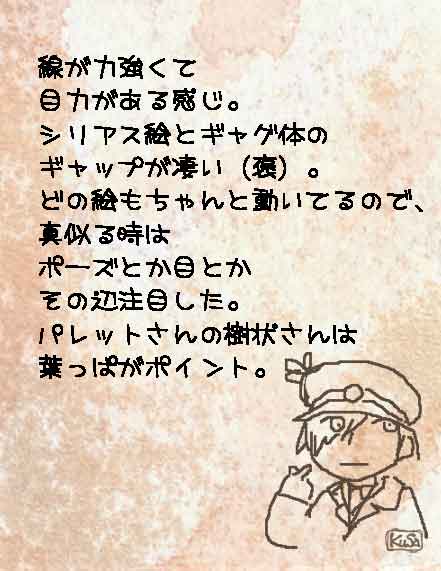 線が力強くて
目力がある感じ。
シリアス絵とギャグ体の
ギャップが凄い（褒）。
どの絵もちゃんと動いてるので、
真似る時は
ポーズとか目とか
その辺注目した。
パレットさんの樹状さんは
葉っぱがポイント。
KUSA